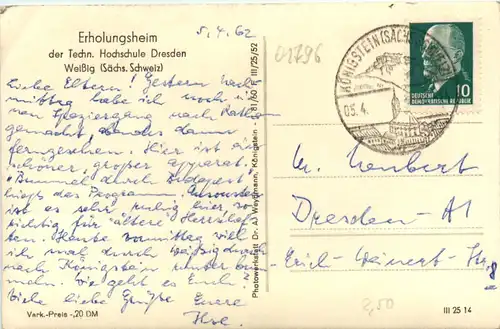 Erholungsheim
der Techn. Hochschule Dresden
Weißig (Sächs. Schweiz)
5.4.62
Liebe Eltern! Gestern Nach-
mittag habe ich noch
einen Spaziergang nach Rathen
gemacht, abends dann
fernzesehen. Hier ist ein
schöner, großer Apparat.
"Bummel durch Budapest"
das Programm. Ansonsten
ist es sehr ruhig hier so
richtig für "ältere" Herrschaf-
ten. Heute vormittag will
ich mal durch Weißig durch
nach Königstein runter bum-
meln. Wie geht es Euch?
Viele liebe Grüße Eure
Verk.-Preis -,20 DM
Photowerkstatt Dr. A. Weydmann, Königstein 81/60 III/25/52
01796
KÖNIGSTEIN (SÄCHS. SCHWEIZ)
05.4.
10
DEUTSCHE
DEMOKRATISCHE REPUBLIK
Dresden-A1
Erich-Weinert-Str. 8
2,50
III 25 14